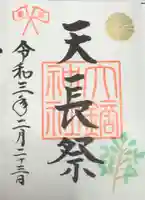 天長祭
神社
令和三年二月二十三日